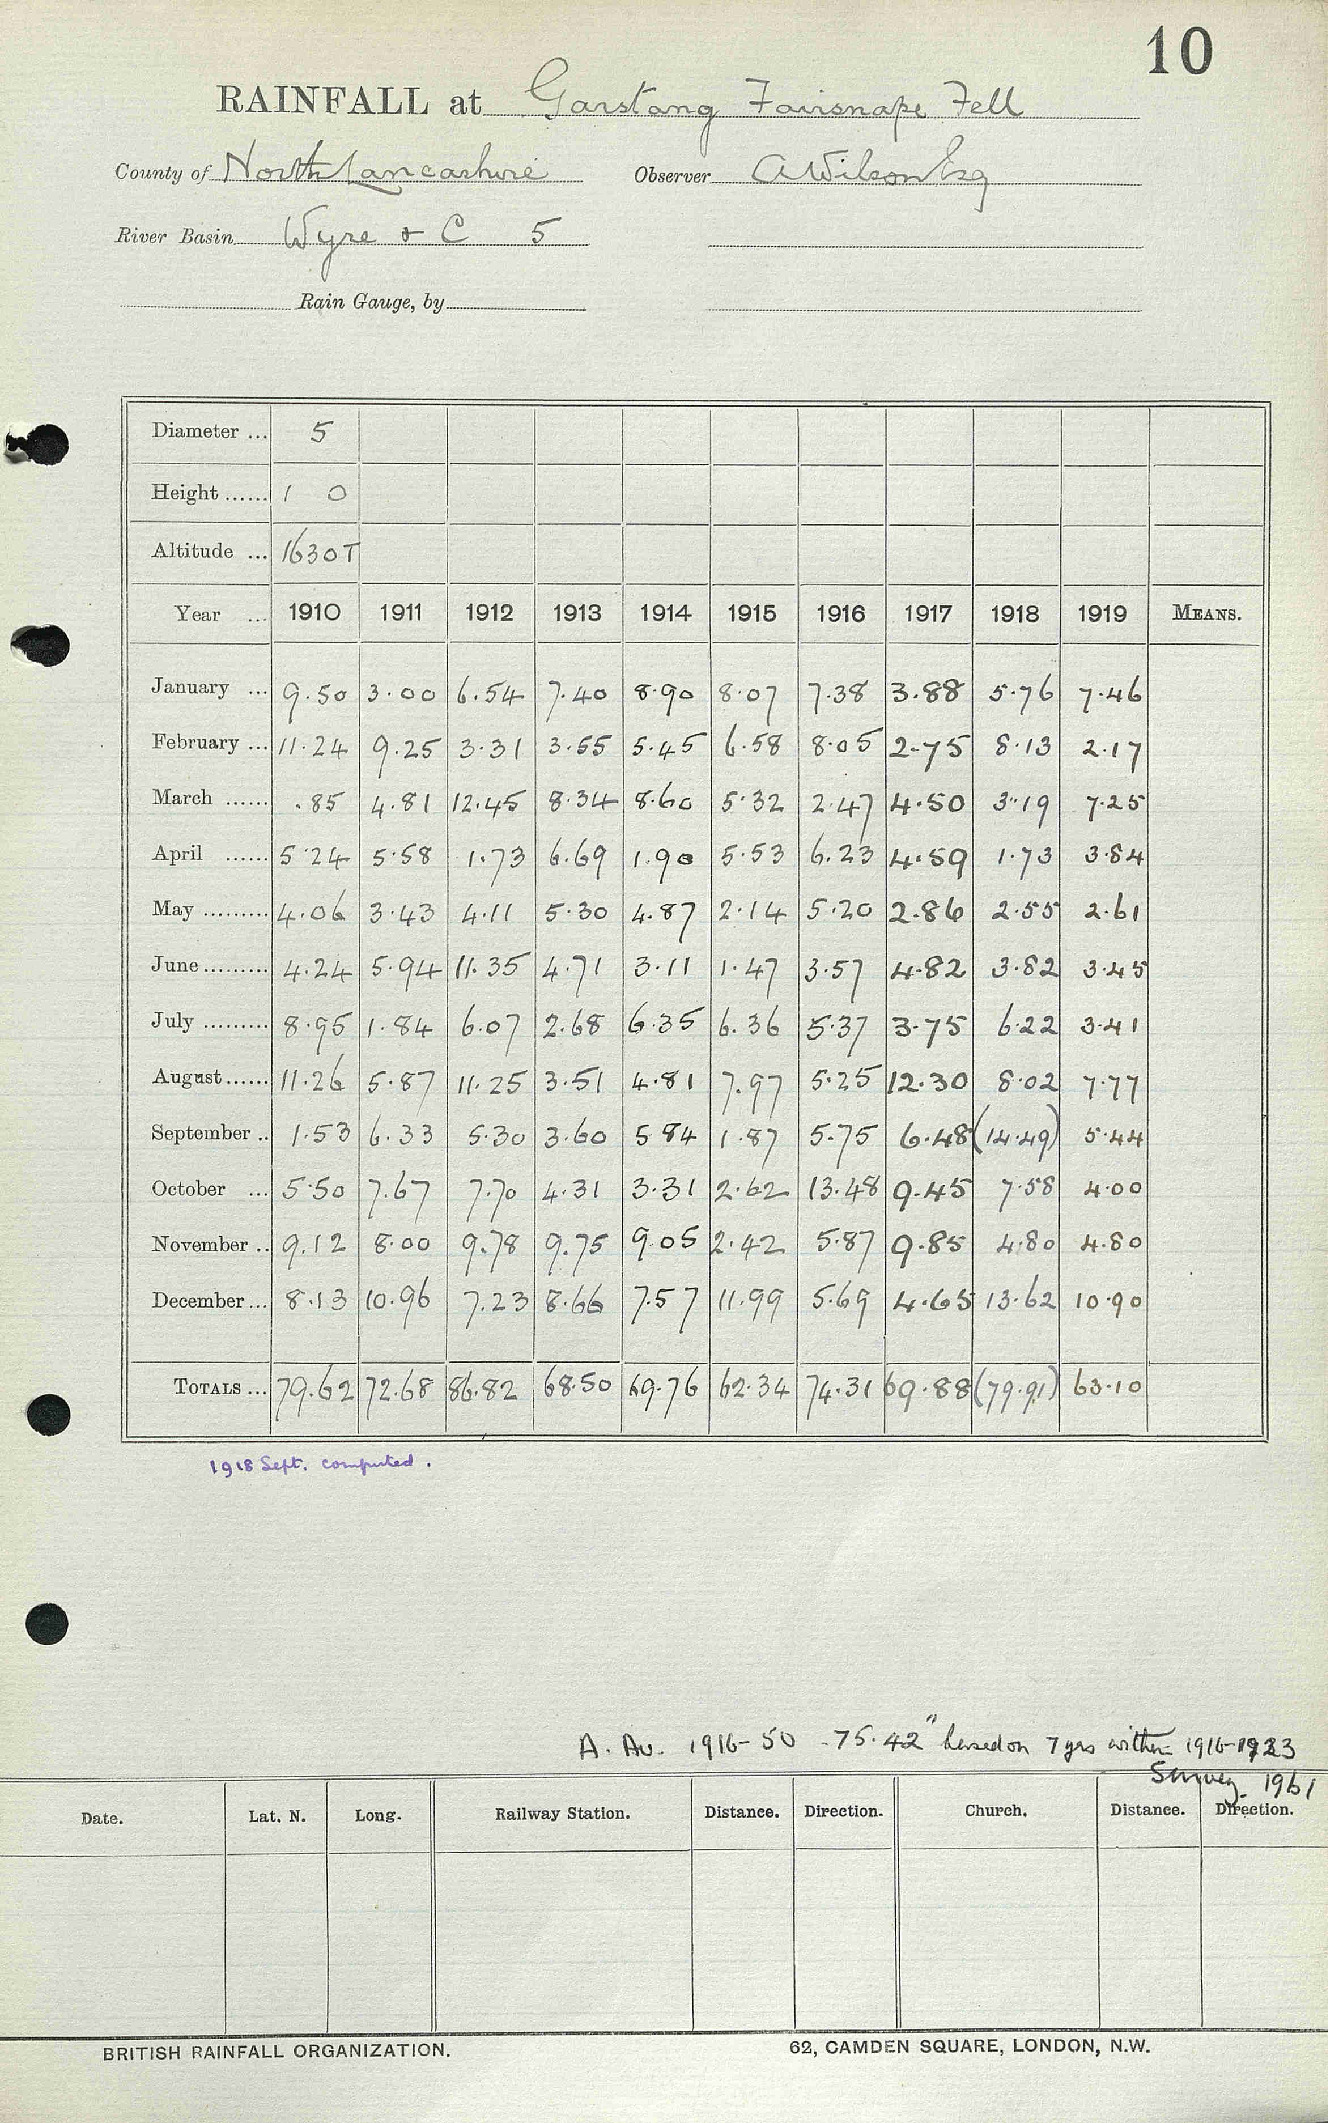 10
RAINFALL at Garstang Fairsnape Fell
County of North Lancashire Observer A Wilson Esq
River Basin Wyre & C 5
Rain Gauge, by
Diameter ... 5
Height ...... 1 0
Altitude ... 1630T
Year ... 1910 1911 1912 1913 1914 1915 1916 1917 1918 1919 MEANS.
January ... 9.50 3.00 6.54 7.40 8.90 8.07 7.38 3.88 5.76 7.46
February ... 11.24 9.25 3.31 3.55 5.45 6.58 8.05 2.75 8.13 2.17
March ...... .85 4.81 12.45 8.34 8.60 5.32 2.47 4.50 3.19 7.25
April ...... 5.24 5.58 1.73 6.69 1.90 5.53 6.23 4.59 1.73 3.84
May ......... 4.06 3.43 4.11 5.30 4.87 2.14 5.20 2.86 2.55 2.61
June ......... 4.24 5.94 11.35 4.71 3.11 1.47 3.57 4.82 3.82 3.45
July ......... 8.95 1.84 6.07 2.68 6.35 6.36 5.37 3.75 6.22 3.41
August ...... 11.26 5.87 11.25 3.51 4.81 7.97 5.25 12.30 8.02 7.77
September .. 1.53 6.33 5.30 3.60 5.84 1.87 5.75 6.48 (14.49) 5.44
October ... 5.50 7.67 7.70 4.31 3.31 2.62 13.48 9.45 7.58 4.00
November .. 9.12 8.00 9.78 9.75 9.05 2.42 5.87 9.85 4.80 4.80
December ... 8.13 10.96 7.23 8.66 7.57 11.99 5.69 4.65 13.62 10.90
TOTALS ... 79.62 72.68 86.82 68.50 69.76 62.34 74.31 69.88 (79.91) 63.10
1918 Sept. computed.
A. Av. 1916-50 75.42" based on 7 yrs within 1916-1923
Survey 1961
Date. Lat. N. Long. Railway Station. Distance. Direction. Church. Distance. Direction.
BRITISH RAINFALL ORGANIZATION. 62, CAMDEN SQUARE, LONDON, N.W.